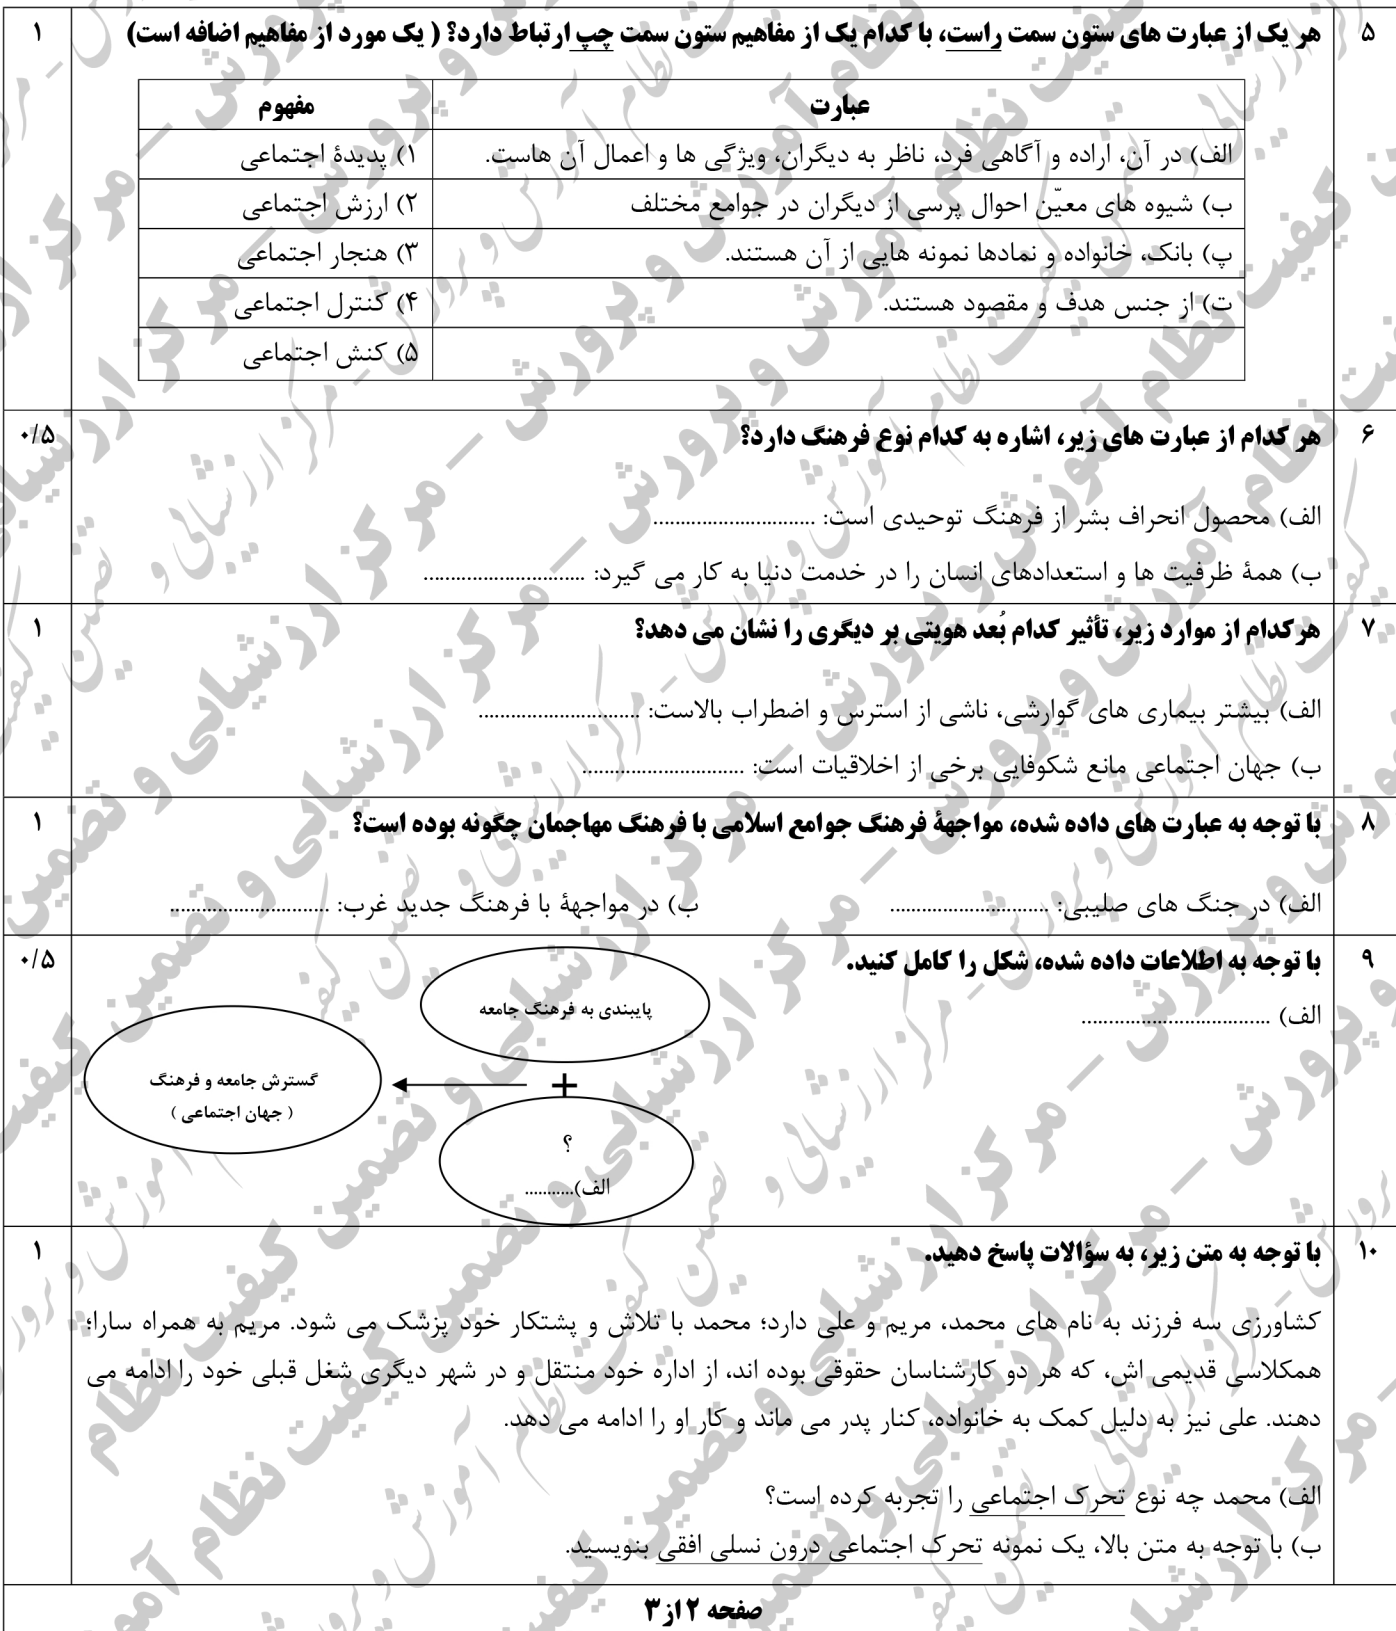 ۵ هر یک از عبارت های ستون سمت راست، با کدام یک از مفاهیم ستون سمت چپ ارتباط دارد؟ ( یک مورد از مفاهیم اضافه است) ۱
عبارت مفهوم
الف) در آن، اراده و آگاهی فرد، ناظر به دیگران، ویژگی ها و اعمال آن هاست. ۱) پدیدۀ اجتماعی
ب) شیوه های معیّن احوال پرسی از دیگران در جوامع مختلف ۲) ارزش اجتماعی
پ) بانک، خانواده و نمادها نمونه هایی از آن هستند. ۳) هنجار اجتماعی
ت) از جنس هدف و مقصود هستند. ۴) کنترل اجتماعی
۵) کنش اجتماعی
۶ هر کدام از عبارت های زیر، اشاره به کدام نوع فرهنگ دارد؟ ۰/۵
الف) محصول انحراف بشر از فرهنگ توحیدی است: ..............................
ب) همۀ ظرفیت ها و استعدادهای انسان را در خدمت دنیا به کار می گیرد: ..............................
۷ هرکدام از موارد زیر، تأثیر کدام بُعد هویتی بر دیگری را نشان می دهد؟ ۱
الف) بیشتر بیماری های گوارشی، ناشی از استرس و اضطراب بالاست: ..............................
ب) جهان اجتماعی مانع شکوفایی برخی از اخلاقیات است: ..............................
۸ با توجه به عبارت های داده شده، مواجهۀ فرهنگ جوامع اسلامی با فرهنگ مهاجمان چگونه بوده است؟ ۱
الف) در جنگ های صلیبی: .............................. ب) در مواجهۀ با فرهنگ جدید غرب: ..............................
۹ با توجه به اطلاعات داده شده، شکل را کامل کنید. ۰/۵
الف) ...................................
پایبندی به فرهنگ جامعه
+
گسترش جامعه و فرهنگ
( جهان اجتماعی )
؟
الف)...........
۱۰ با توجه به متن زیر، به سؤالات پاسخ دهید. ۱
کشاورزی سه فرزند به نام های محمد، مریم و علی دارد؛ محمد با تلاش و پشتکار خود پزشک می شود. مریم به همراه سارا؛
همکلاسی قدیمی اش، که هر دو کارشناسان حقوقی بوده اند، از اداره خود منتقل و در شهر دیگری شغل قبلی خود را ادامه می
دهند. علی نیز به دلیل کمک به خانواده، کنار پدر می ماند و کار او را ادامه می دهد.
الف) محمد چه نوع تحرک اجتماعی را تجربه کرده است؟
ب) با توجه به متن بالا، یک نمونه تحرک اجتماعی درون نسلی افقی بنویسید.
صفحه ۲ از ۳